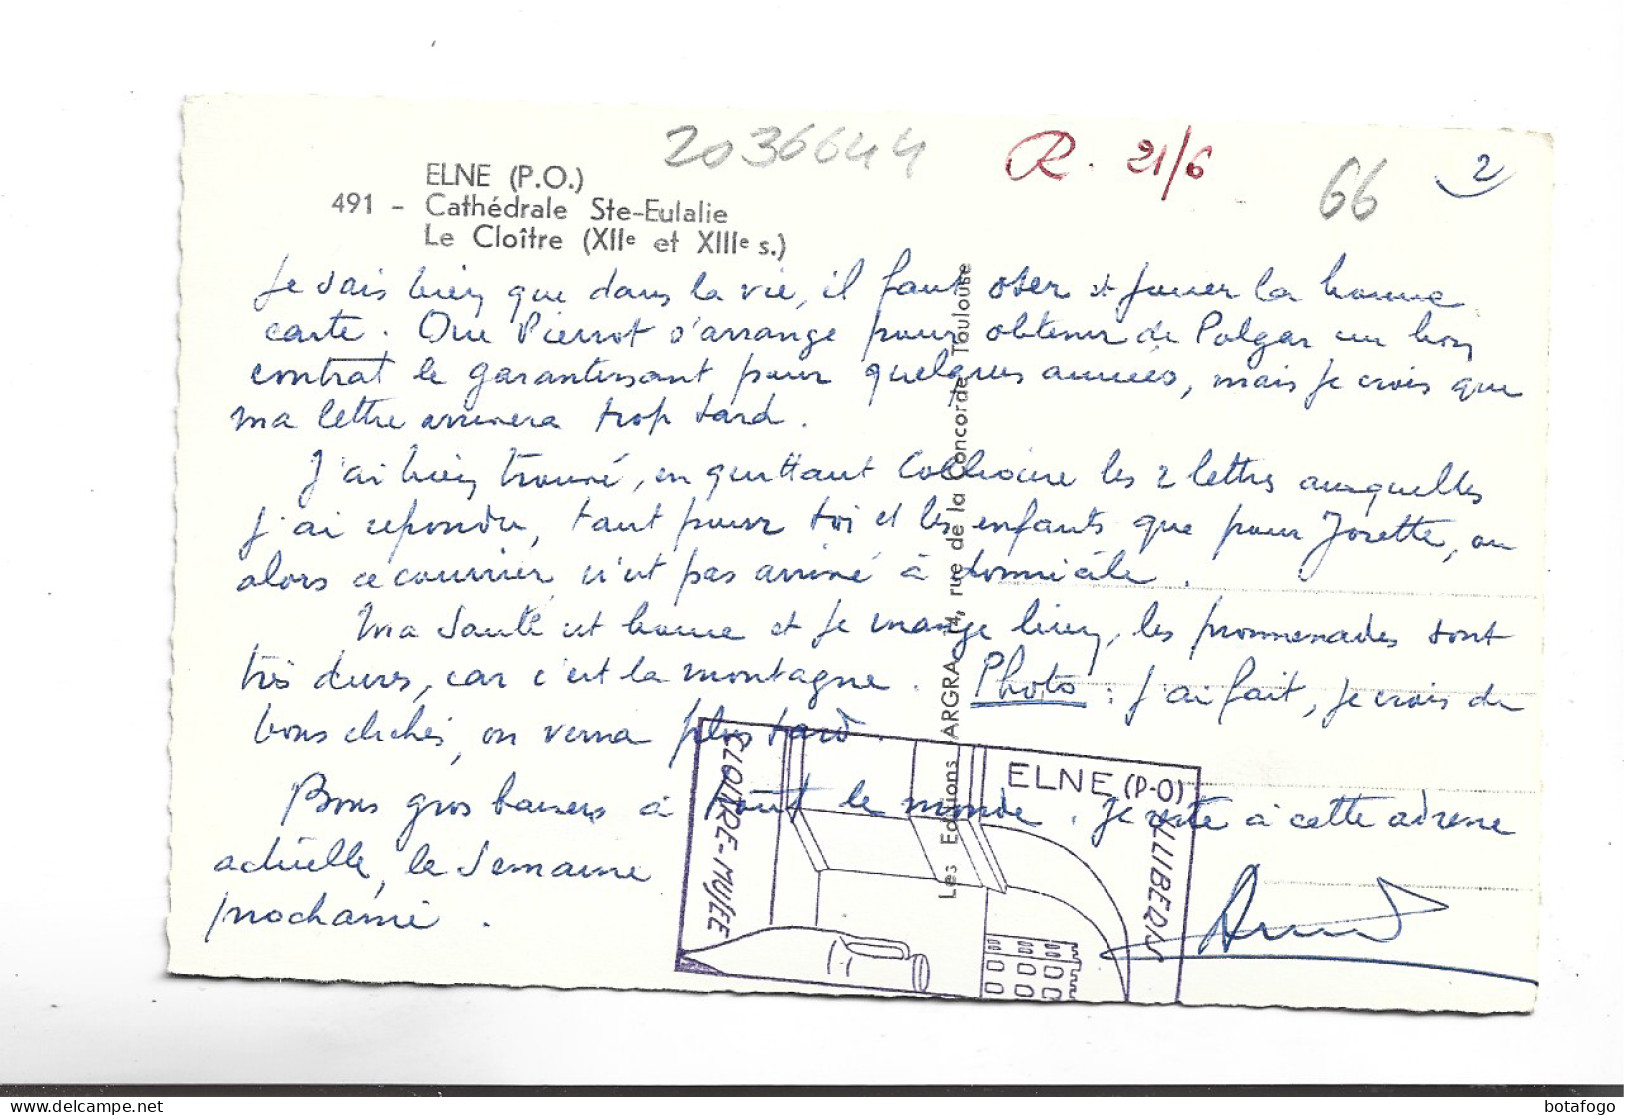 2036644
R. 21/6
66
2
ELNE (P.O.)
491 - Cathédrale Ste-Eulalie
Le Cloître (XIIe et XIIIe s.)
Je sais bien que dans la vie, il faut oser et jouer la bonne
carte. Que Pierrot s'arrange pour obtenir de Polgar un bon
contrat le garantissant pour quelques années, mais je crois que
ma lettre arrivera trop tard.
J'ai bien trouvé, en quittant Collioure les 2 lettres auxquelles
j'ai répondu, tant pour toi et les enfants que pour Josette, ou
alors ce courrier n'est pas arrivé à domicile.
Ma santé est bonne et je mange bien, les promenades sont
très dures, car c'est la montagne. Photo : j'ai fait, je crois de
bons clichés, on verra plus tard.
Bons gros baisers à tout le monde. Je reste à cette adresse
actuelle, la semaine
prochaine.
Les Editions ARGRA 14, rue de la Concorde Toulouse
ELNE (P-O)
CLOITRE-MUSEE
ILLIBERIS
botafogo